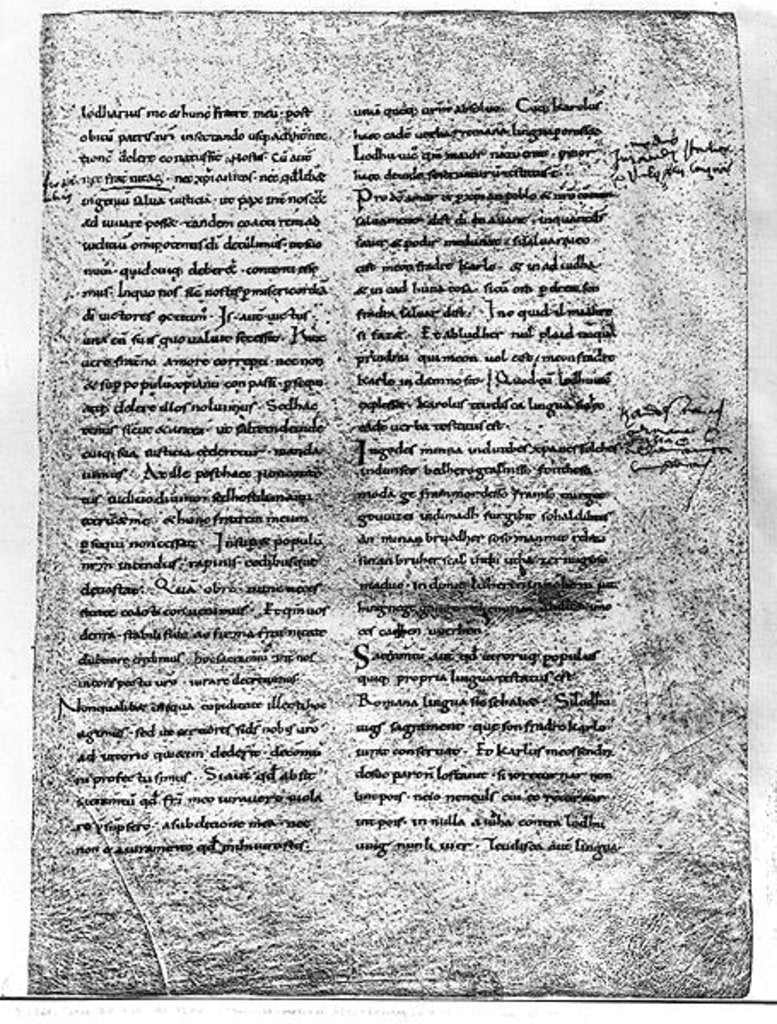 lodharius me & hunc fratrē meū post
obitū patris nr̄i insectando usq; ad inter ne
tionē delere conatus sit nostis. Cū autē
nec fraternitas nec xp̄ianitas nec quodlibet
ingeniū salua iusticia ut pax inter nos eēt
adiuuare posset tandem coacti rem ad
iudiciū omnipotentis dī detulimus ut suo
nutu quid cuiq; deberet contenti esse
mus. In quo nos
dī uictores extitimus. Is autē uictus
una cū suis quo ualuit secessit. Hinc
uero fraterno amore correpti nec non
& sup populū xp̄ianū conpassi persequi
atq; delere illos noluimus. Sed hac
tenus sicut & antea ut saltem deinde
cuiq; sua iusticia cederetur manda
uimus. At ille post haec non contentus
iudicio diuino sed hostili manu
iterum & me & hunc fratrem meum
persequi non cessat. Insup & populū
nr̄m incendiis rapinis cedibusque
deuastat. Quā ob rē nunc neces
sitate coacti conuenimus. Et quia uos
de nr̄a stabili fide ac firma fraternitate
dubitare credimus hoc sacramentū inter nos
in conspectu ur̄o iurare decreuimus.
Non qualibet iniqua cupiditate illecti hoc
agimus sed ut certiores si ds̄ nobis ur̄o
adiutorio quietem dederit de cōmu
ni profectu simus. Si autē qd̄ absit
sacramentū qd̄ fr̄i meo iurauero uiola
re praesumpsero a subditione mea nec
non & a iuramento qd̄ mihi iurastis
unū quēq; ur̄m absoluo. Cūq; karolus
haec eadē uerba romana lingua perorasset
Lodhuuic qm̄ maior natu erat prior
haec deinde se seruaturū testatus est.
Pro dō amur & p xp̄ian poblo & nr̄o cōmun
saluament. dist di en auant. inquantds
sauir & podir me dunat. si saluaraieo
cist meon fradre karlo. & in ad iudha
& in cad huna cosa. sicū om p dreit son
fradra saluar dist. Ino quid il mialtre
si faz&. Et abludher nul plaid nūquā
prindrai qui meon uol cist meon fradre
karle in damno sit. Quod cū lodhuuic
explesset. karolus teudisca lingua sic hec
eadē uerba testatus est.
Ingodes minna indinthes xpanes folches
indunser bedhero gealtnissi. fonthese
moda ge frammordesso framso mirgot
geuuizci indimadh furgibit sohaldihtes
an minan bruodher soso manmit rehtu
sinan bruher scal inthi utha zer mig soso
maduo. indimit luheren in noheiniu
thing ne gegango
ce scadhen uuerhen.
Sacramentū autē qd̄ utrorūq; populus
quiq; propria lingua testatus est.
Romana lingua sic se habet. Silodhu
uigs sagrament. que son fradre karlo
iurat conseruat. Et karlus meos sendra
desuo partn̄ lostanit. si ioreturnar non
lint pois. neio neneuls cui eo returnar
int pois. in nulla aiudha contra lodhu
uuig nunli iuer. Teudisca autē lingua